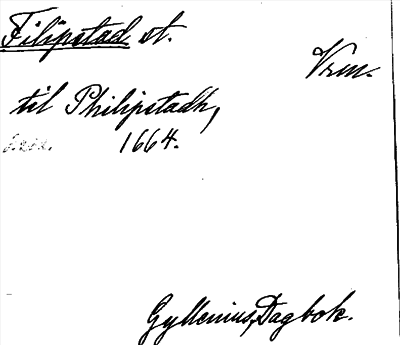 Filipstad st.
Vrm.
til Philipstadh,
1664.
Gyllenius, Dagbok.